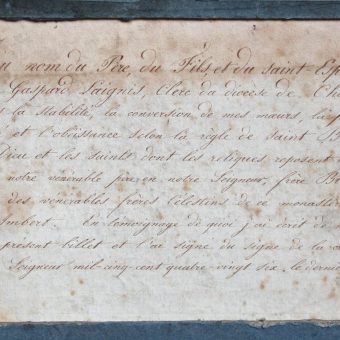 Au nom du Père, du Fils, et du saint-Esp
Gaspard Laignis, Clerc du diocèse de Ch
la stabilité, la conversion de mes mœurs, la p
et l'obéissance selon la règle de saint B
Dieu et les saints dont les reliques reposent
notre vénérable père en notre Seigneur, frère B
des vénérables frères Célestins de ce monastè
Imbert. En témoignage de quoi j'ai écrit de
présent billet et l'ai signé du signe de la c
Seigneur mil-cinq-cent quatre vingt six le dernie